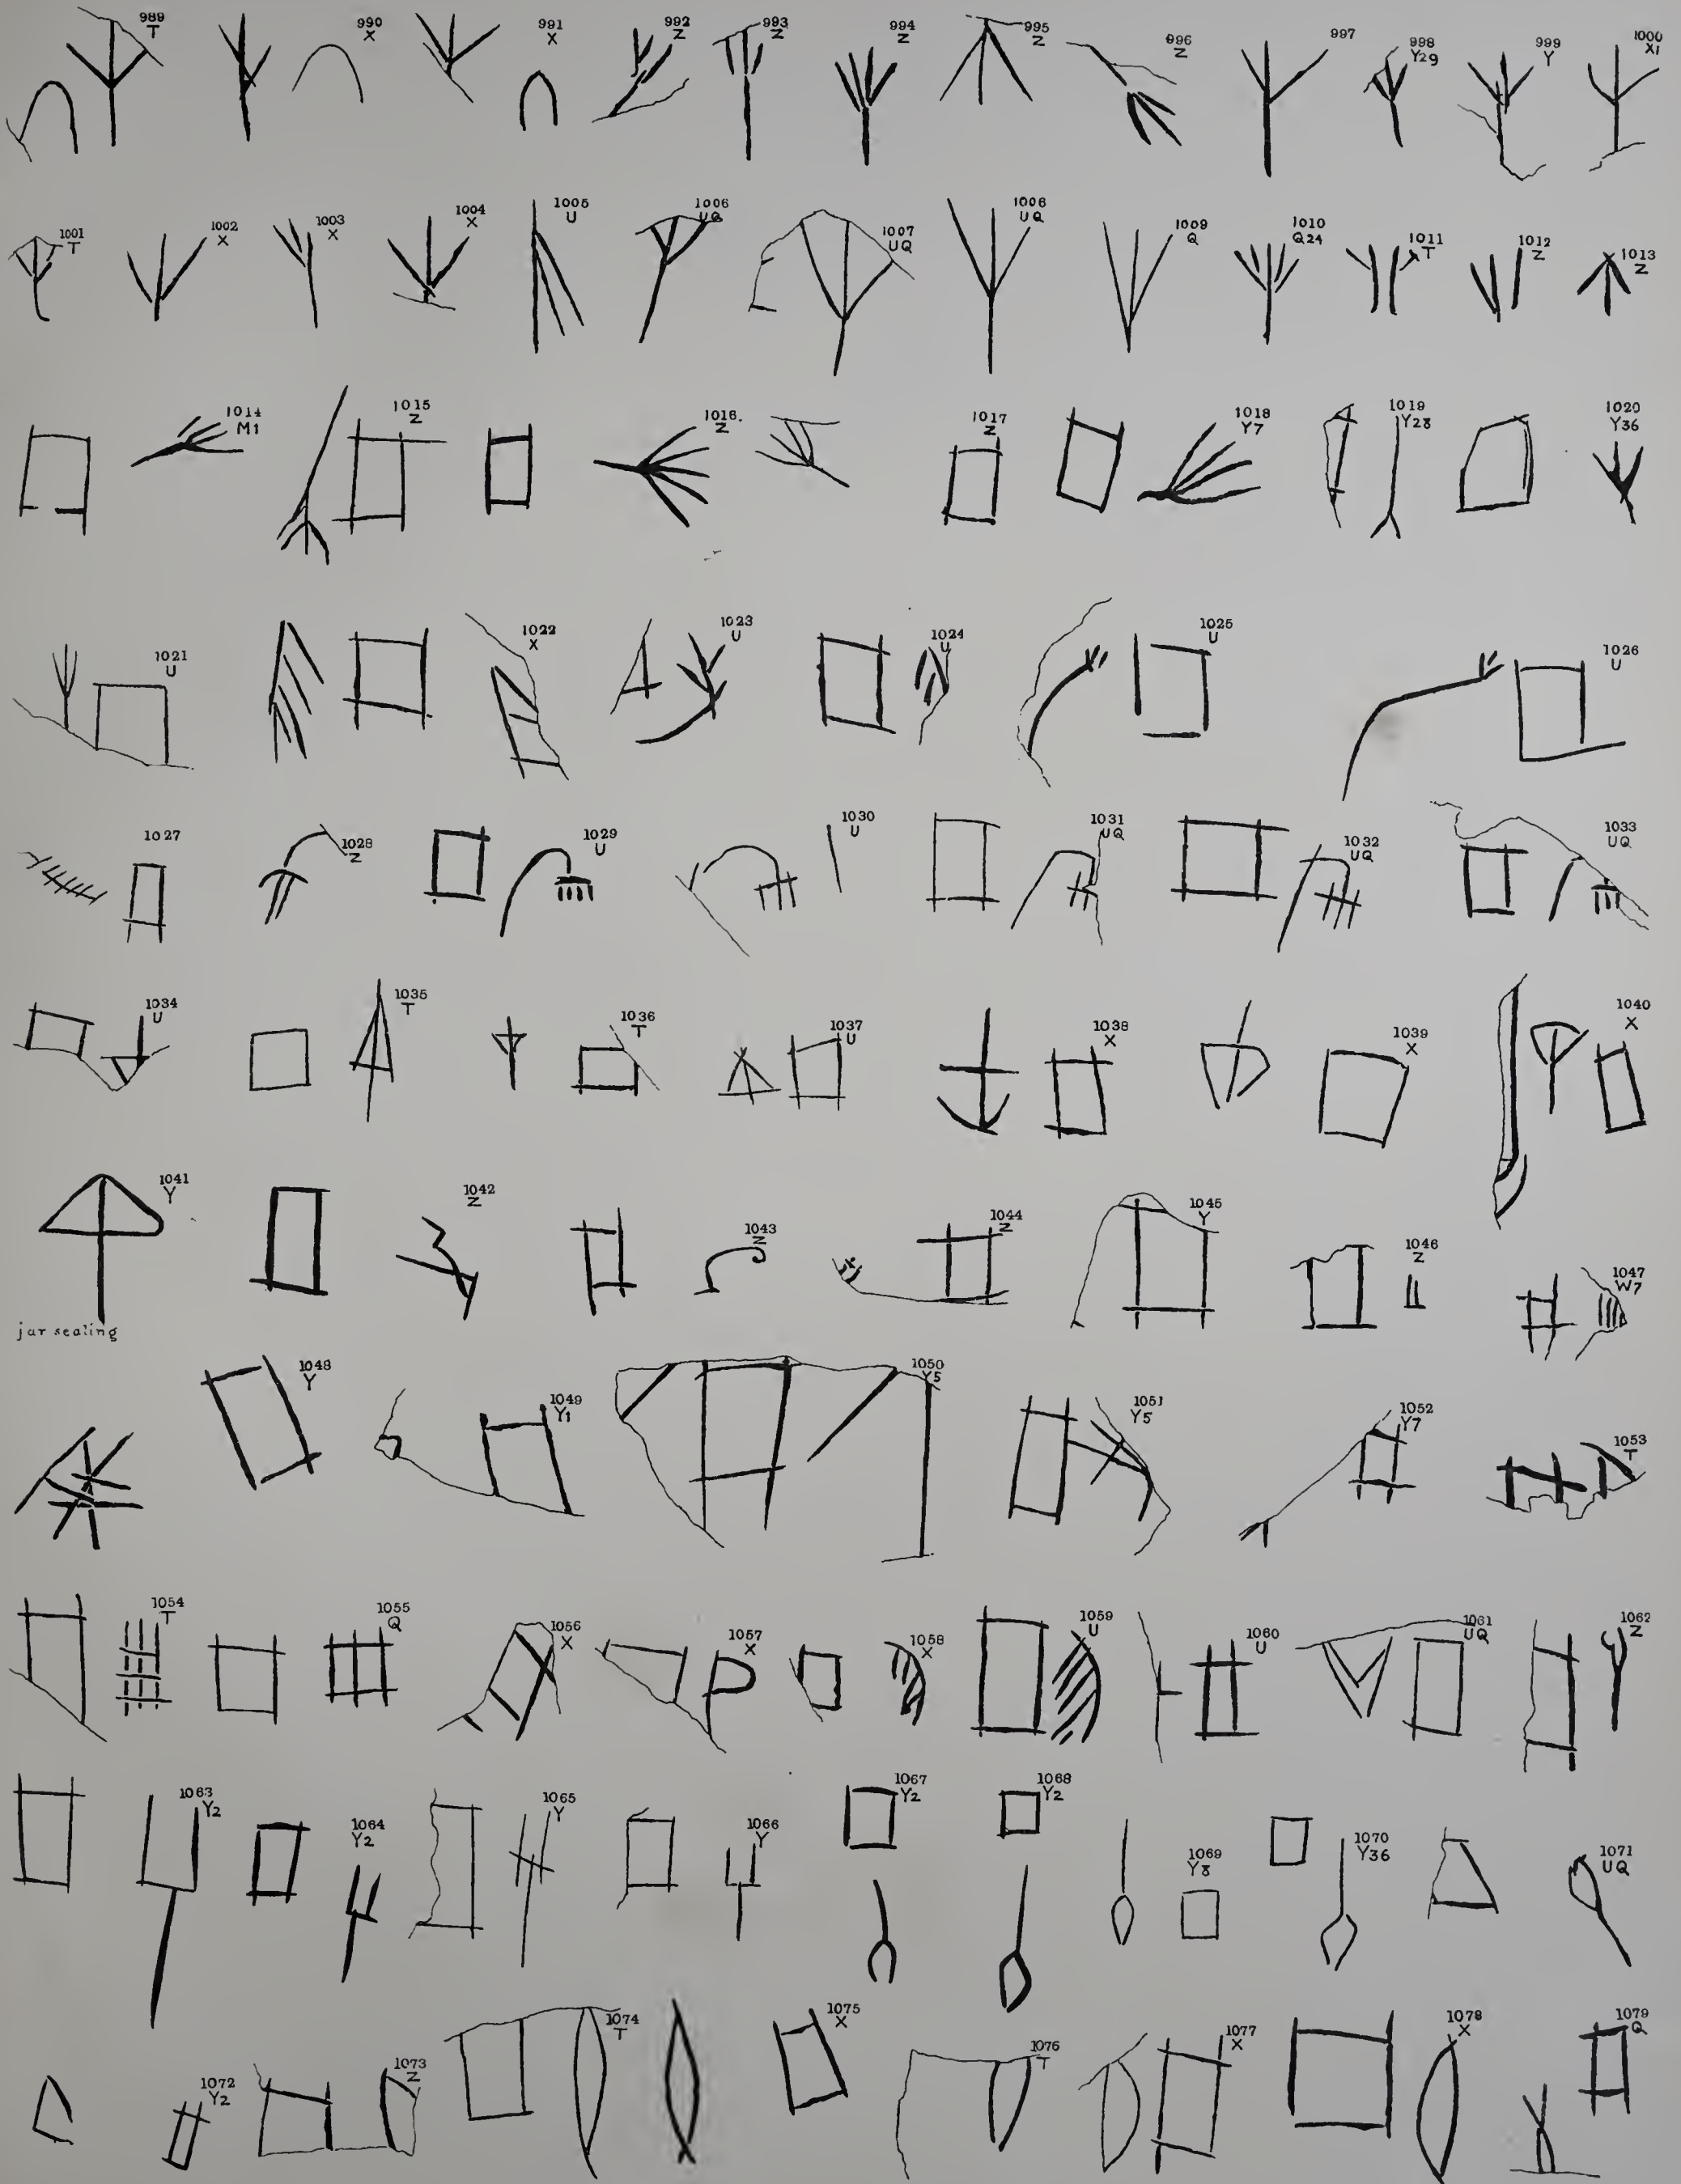 989 T
990 X
991 X
992 Z
993 Z
994 Z
995 Z
996 Z
997
998 Y29
999 Y
1000 X1
1001 T
1002 X
1003 X
1004 X
1005 U
1006 UQ
1007 UQ
1006 UQ
1009 Q
1010 Q24
1011 T
1012 Z
1013 Z
1014 M1
1015 Z
1016 Z
1017 Z
1018 Y7
1019 Y28
1020 Y36
1021 U
1022 X
1023 U
1024 U
1025 U
1026 U
1027
1028 Z
1029 U
1030 U
1031 UQ
1032 UQ
1033 UQ
1034 U
1035 T
1036 T
1037 U
1038 X
1039 X
1040 X
1041 Y
jar sealing
1042 Z
1043 Z
1044 Z
1045 Y
1046 Z
1047 W7
1048 Y
1049 Y1
1050 Y5
1051 Y5
1052 Y7
1053 T
1054 T
1055 Q
1056 X
1057 X
1058 X
1059 U
1060 U
1061 UQ
1062 Z
1063 Y2
1064 Y2
1065 Y
1066 Y
1067 Y2
1068 Y2
1069 Y8
1070 Y36
1071 UQ
1072 Y2
1073 Z
1074 T
1075 X
1076 T
1077 X
1078 X
1079 Q